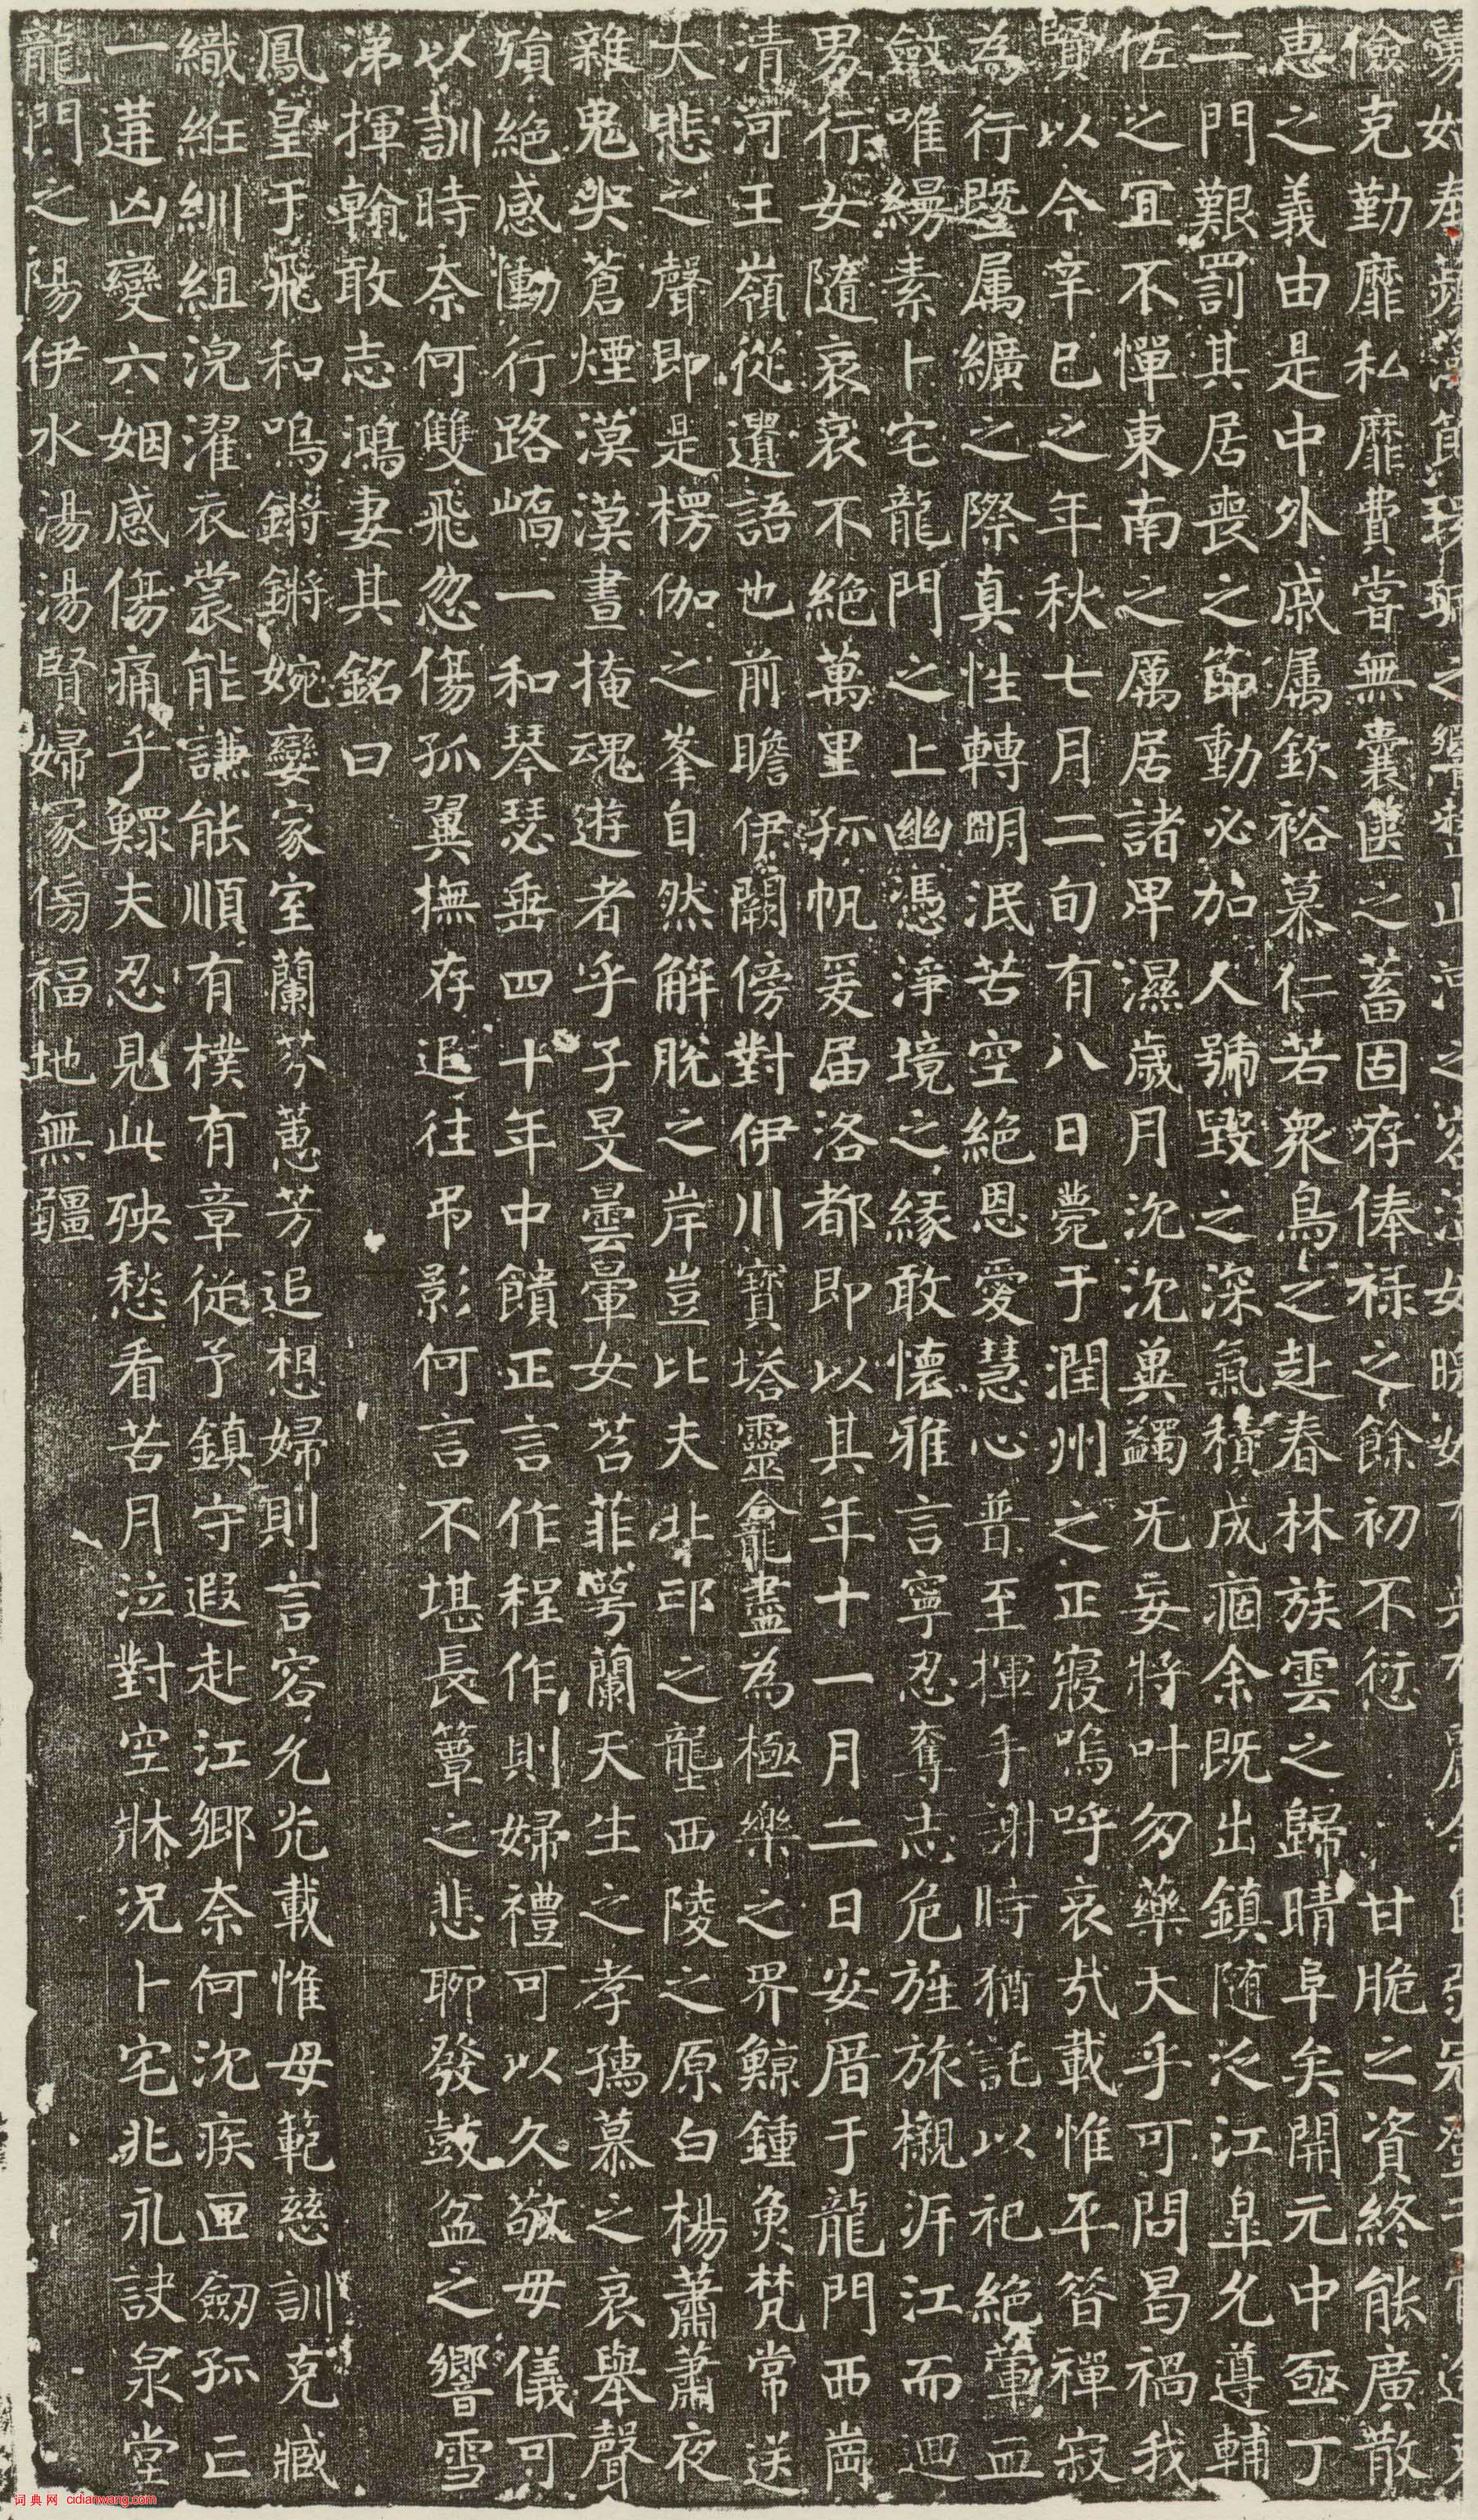 儉克勤靡私靡費嘗無囊篋之蓄固存俸祿之餘初不愆甘脆之資終能廣散
惠之義由是中外戚属欽裕慕仁若衆鳥之赴春林族雲之歸晴阜矣開元中亟丁
二門艱罰其居喪之節動必加人號毀之深氣積成痼余既出鎮随泛江皐允遵輔
佐之冝不憚東南之厲居諸卑濕歲月沈沈冀蠲旡妄將叶勿藥天乎可問曷禍我
賢以今辛巳之年秋七月二旬有八日薨于潤州之正寢嗚呼哀哉載惟平昝禪寂
為行暨属纊之際真性轉明泯苦空絶恩愛慧心普至揮手謝時猶託以祀絶葷血
斂唯縵素卜宅龍門之上幽憑淨境之緣敢懷雅言寧忍奪志危旌旅櫬泝江而迴
男行女隨哀哀不絶萬里孤帆爰届洛都即以其年十一月二日安厝于龍門西崗
清河王嶺從遺語也前瞻伊闕傍對伊川寳塔靈龕盡為極樂之界鯨鍾魚梵常送
大悲之聲即是楞伽之峯自然解脫之岸豈比夫北邙之壟西陵之原白楊蕭蕭夜
雜鬼哭蒼煙漠漠晝掩魂遊者乎子旻曇暈女苕菲萼蘭天生之孝孺慕之哀舉聲
殞絶感慟行路嶠一和琴瑟垂四十年中饋正言作程作則婦禮可以久敬母儀可
以訓時奈何雙飛忽傷孤翼撫存追往弔影何言不堪長簟之悲聊發鼓盆之響雪
涕揮翰敢志鴻妻其銘曰
鳳皇于飛和鳴鏘鏘婉孌家室蘭芬蕙芳追想婦則言容允光載惟母範慈訓克臧
織紝紃組浣濯衣裳能謙能順有樸有章從予鎮守遐赴江鄉奈何沈疾匣劒孤亡
一遘凶變六姻感傷痛乎鰥夫忍見此殃愁看苦月泣對空牀况卜宅兆永訣泉堂
龍門之陽伊水湯湯賢婦冢傍福地無疆
词典网 cidianwang.com